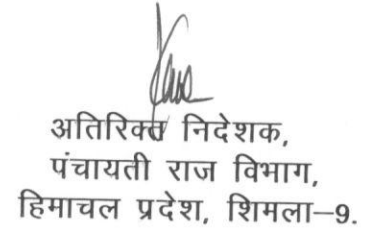 अतिरिक्त निदेशक,
पंचायती राज विभाग,
हिमाचल प्रदेश, शिमला–9.